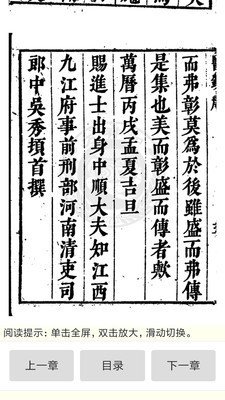 而弗彰莫為於後雖盛而弗傳
是集也美而彰盛而傳者歟
萬曆丙戌孟夏吉旦
賜進士出身中順大夫知江西
九江府事前刑部河南清吏司
郎中吳秀頓首撰
阅读提示：单击全屏，双击放大，滑动切换。
上一章
目录
下一章